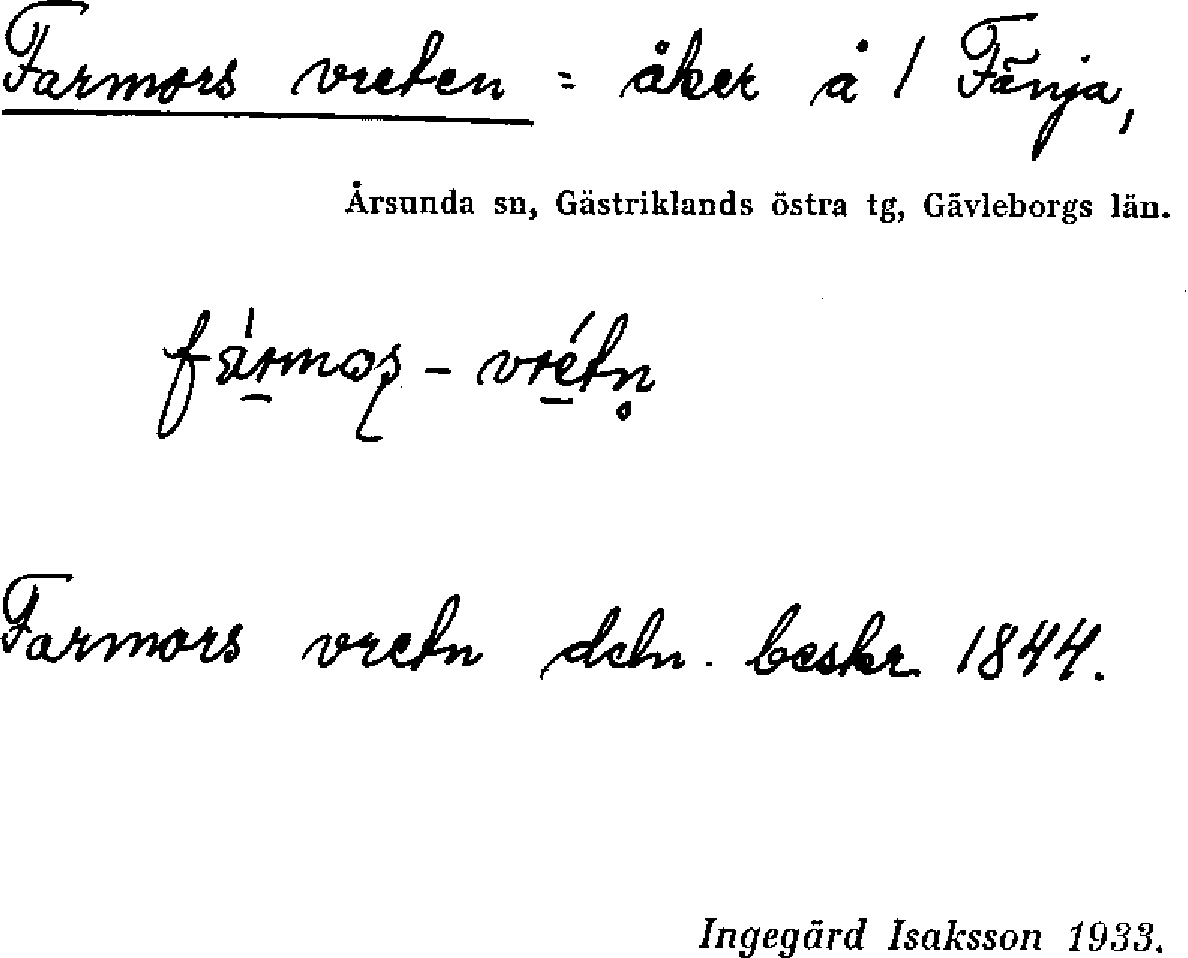 Farmors vreten = åker å / Fänja,
Årsunda sn, Gästriklands östra tg, Gävleborgs län.
Farmors vretn deln. beskr. 1844.
Ingegärd Isaksson 1933.